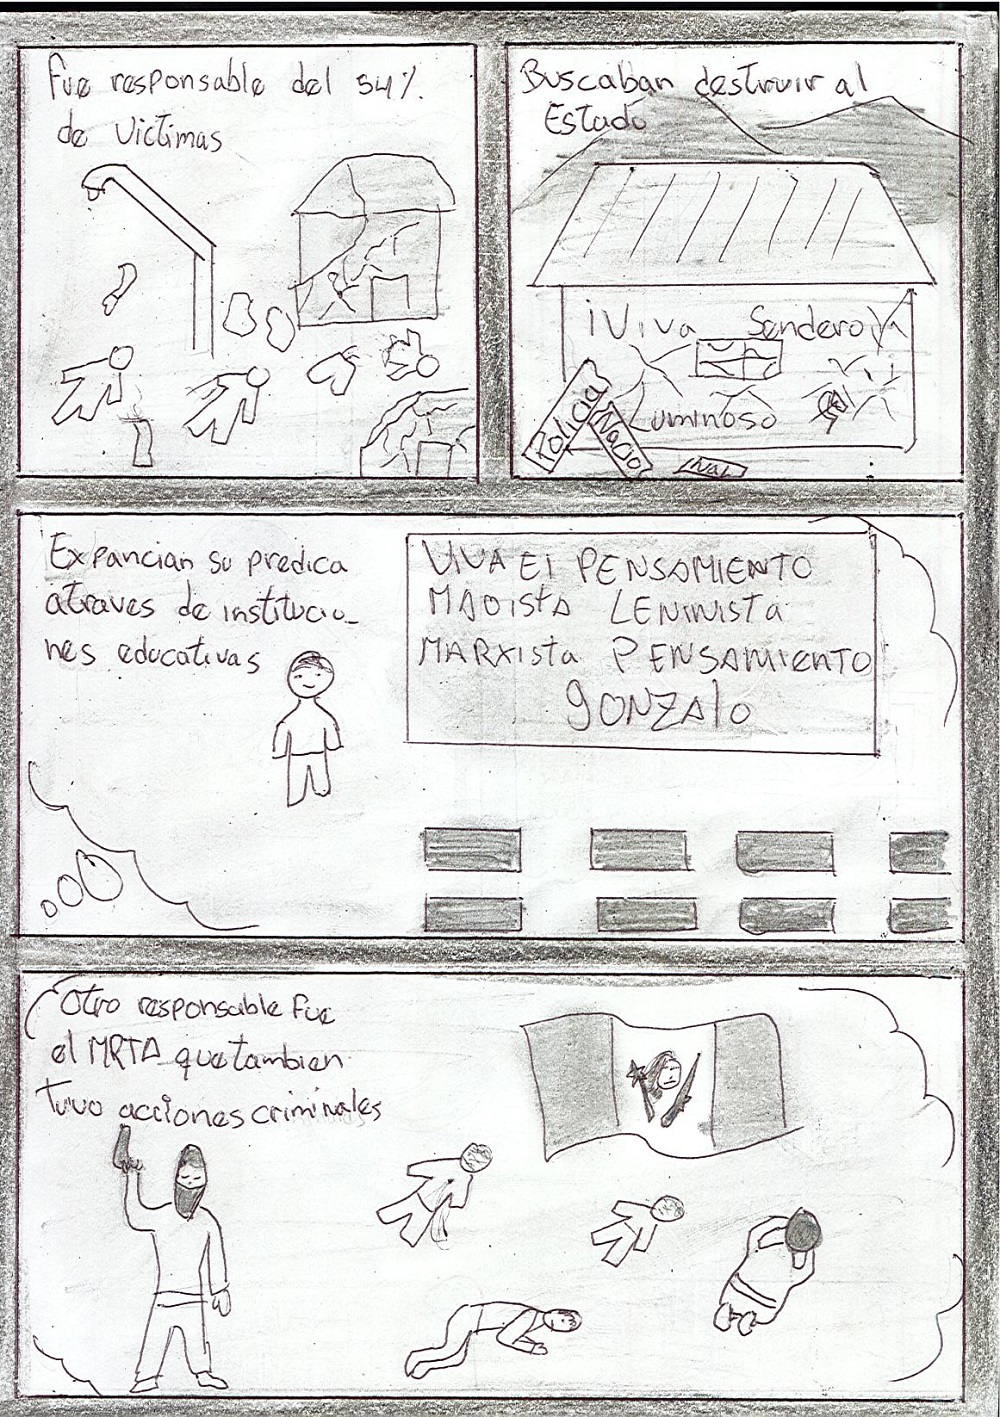 Fue responsable del 54%.
de Victimas
Buscaban destruir al
Estado
¡Viva Sendero
Luminoso
Policia
Nacio
Nal
Expancian su predica
atraves de institucio_
nes educativas
VIVA El PENSAMIENTO
MAOIStA LENINISTA
MARXISta PENSAMIENTO
gONZAlO
Otro responsable fue
el MRTA que tambien
Tuvo acciones criminales